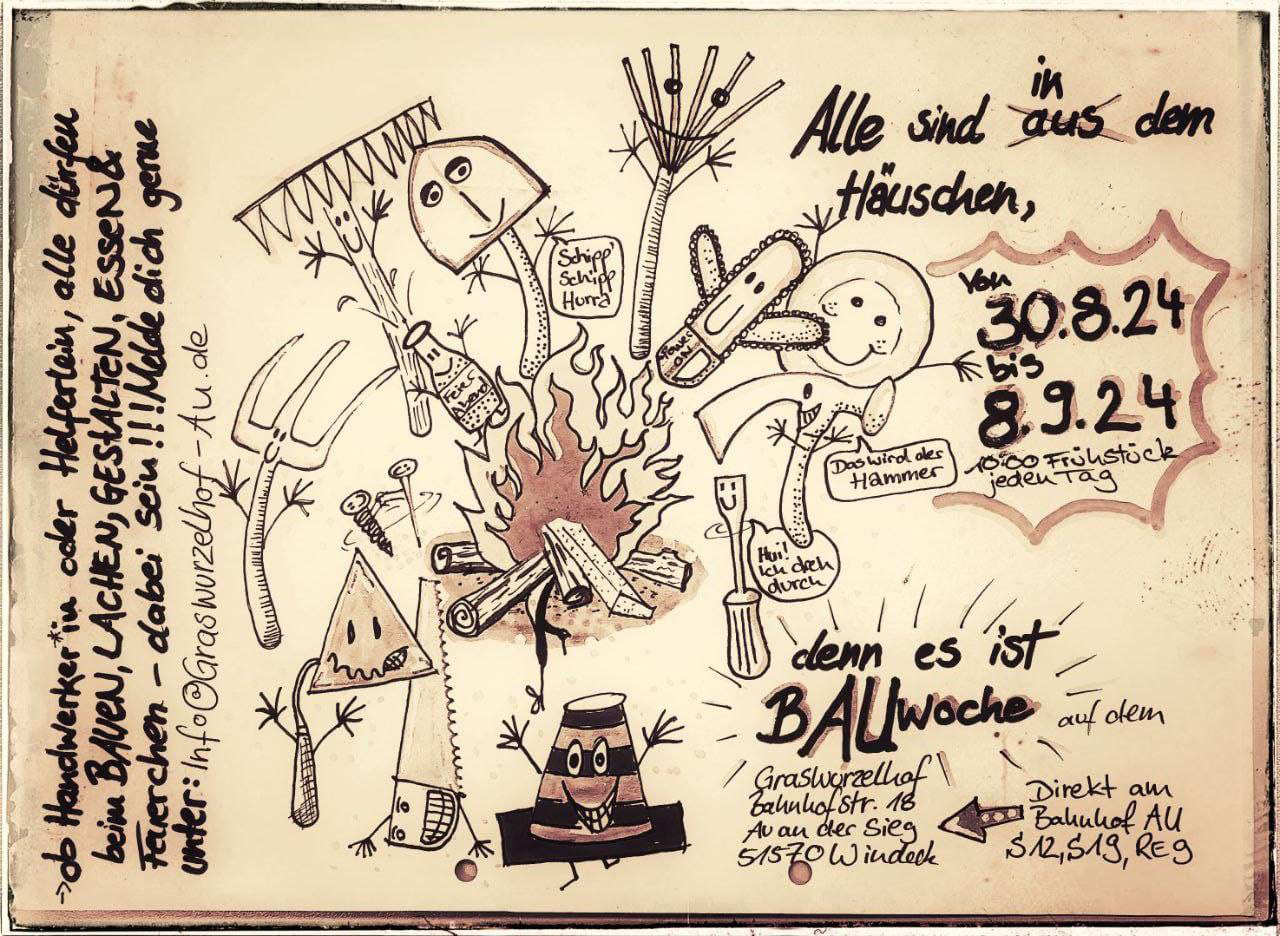 in
Alle sind aus dem
Häuschen,
von
30.8.24
bis
8.9.24
10:00 Frühstück
jeden Tag
Schipp'
Schipp
Hurra
Das wird der
Hammer
Hui!
Ich dreh
durch
denn es ist
BAUwoche auf dem
Graswurzelhof
Bahnhofstr. 18
Au an der Sieg
51570 Windeck
Direkt am
Bahnhof AU
S12, S19, RE9
->ob Handwerker*in oder Helferlein, alle dürfen
beim BAUEN, LACHEN, GESTALTEN, ESSEN &
Feuerchen - dabei sein!!! Melde dich gerne
unter: Info@Graswurzelhof-Au.de